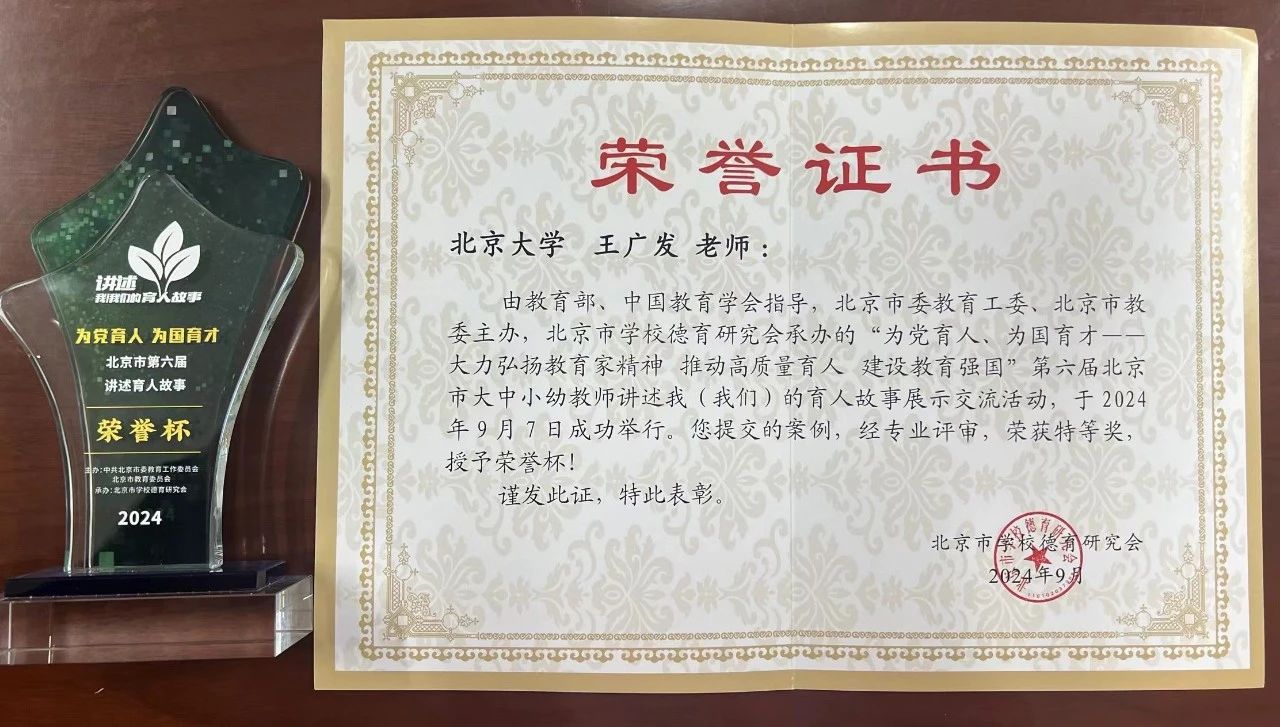 讲述
我(我们)的育人故事
为党育人 为国育才
北京市第六届
讲述育人故事
荣誉杯
主办:中共北京市委教育工作委员会
北京市教育委员会
承办:北京市学校德育研究会
2024
荣誉证书
北京大学 王广发 老师:
由教育部、中国教育学会指导,北京市委教育工委、北京市教
委主办,北京市学校德育研究会承办的“为党育人、为国育才——
大力弘扬教育家精神 推动高质量育人 建设教育强国”第六届北京
市大中小幼教师讲述我(我们)的育人故事展示交流活动,于2024
年9月7日成功举行。您提交的案例,经专业评审,荣获特等奖,
授予荣誉杯!
谨发此证,特此表彰。
北京市学校德育研究会
2024年9月